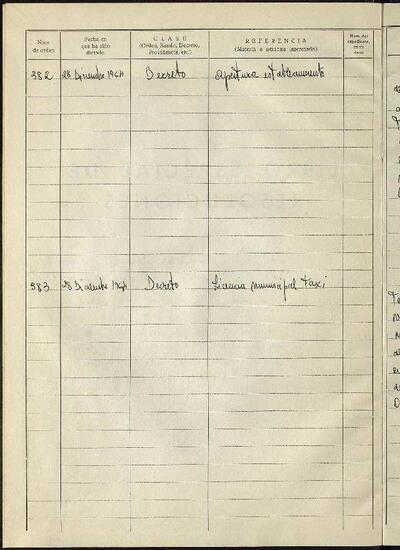 Núm. de orden
Fecha en que ha sido dictado
CLASE
(Orden, Bando, Decreto, Providencia, etc.)
REFERENCIA
(Materia o persona interesada)
Núm. del expediente,
382 28 Diciembre 1964 Decreto Apertura establecimiento
383 28 Diciembre 1964 Decreto Licencia municipal taxi